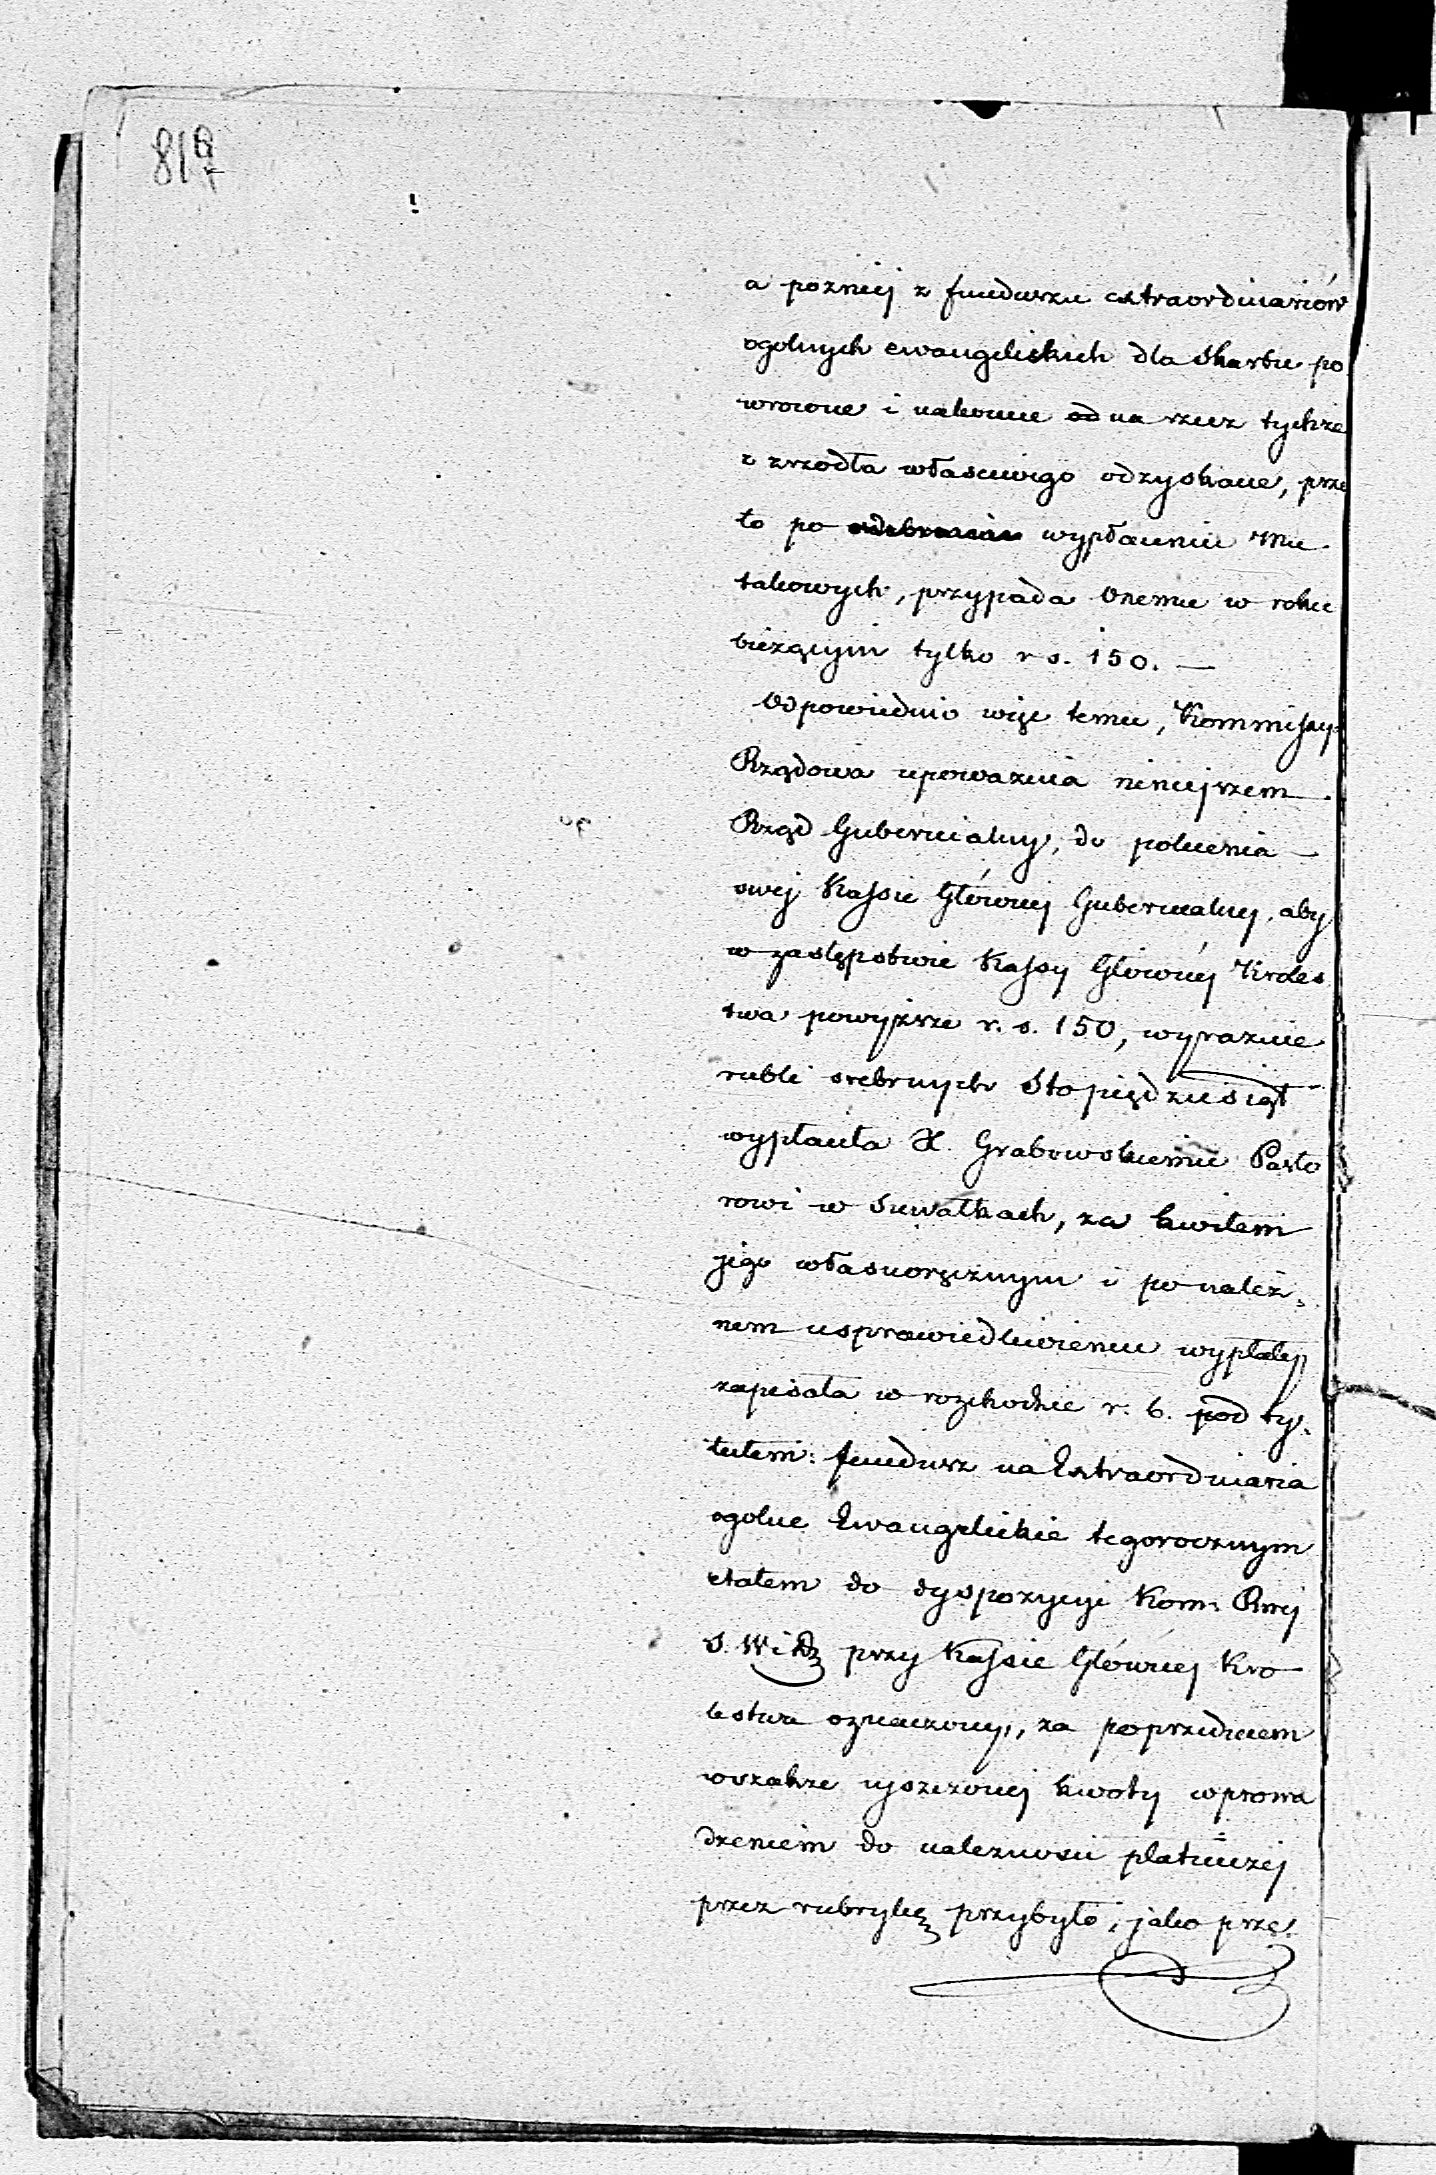 a pozniej z funduszu extraordinariów
ogolnych ewangelickich dla Skarbu po
wrocone i nakoniec od na rzecz tychże
z zrzodła własciwego odzyskane, prze
to po odebraniu wypłaceniu mu
takowych, przypada Onemu w roku
bieżącym tylko r s. 150. —
Odpowiednio więc temu, Kommissya
Rządowa upoważnia niniejszem
Rząd Gubernialny, do polecenia
swej Kassie Głównej Gubernialnej, aby
w zastępstwie Kassy Głównej Króles
twa powyższe r. s. 150, wyraznie
rubli srebrnych Stopiędziesiąt
wypłaciła X. Grabowskiemu Pasto
rowi w Suwałkach, za kwitem
jego własnoręcznym i po należ„
nem usprawiedliwieniu wypłaty
zapisała w rozchodzie r. b. pod ty„
tułem: fundusz na Extraordinaria
ogolne Ewangelickie tegorocznym
etatem do dyspozycyi Kom. Rwej
S. W i D. przy Kassie Głównej Kro
lestwa oznaczony, za poprzedniem
wszakże uiszczonej kwoty wprowa
dzeniem do należnosci płatniczej
przez rubrykę przybyło, jako prze„